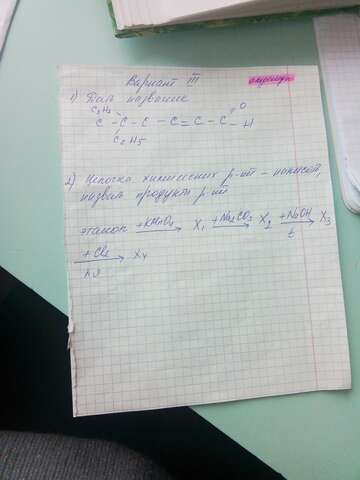 Вариант III
1) Дать название
C2H5 O
C - C - C - C = C - C - H
C2H5
2) Цепочка химических р-ий - написать,
назвать продукты р-ий
этанол +KMnO4 → X1 +Na2CO3 → X2 +NaOH t → X3
+Cl2 hν → X4